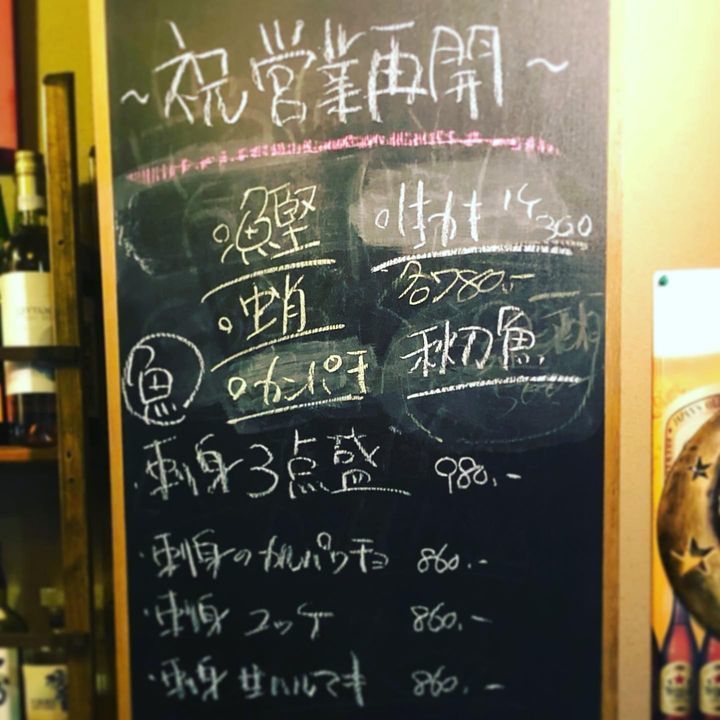 ~祝営業再開~
鰹
生かき 1ケ360
各780.-
蛸
秋刀魚
魚
カンパチ
・刺身3点盛 980.-
・刺身のカルパッチョ 860.-
・刺身ユッケ 860.-
・刺身生ハルマキ 860.-